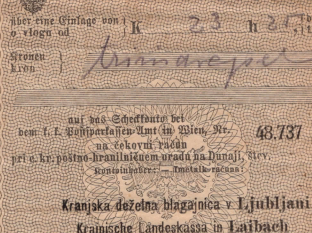 über eine Einlage von K 23 h 21
o vlogu od
Kronen
kron
auf das Scheckkonto bei
dem k. k. Postsparkassen-Amt in Wien, Nr. 48.737
na čekovni račun
pri c. kr. poštno-hranilničnem uradu na Dunaji, štev.
Kontoinhaber: — Imetnik računa:
Kranjska deželna blagajnica v Ljubljani
Krainische Landeskassa in Laibach